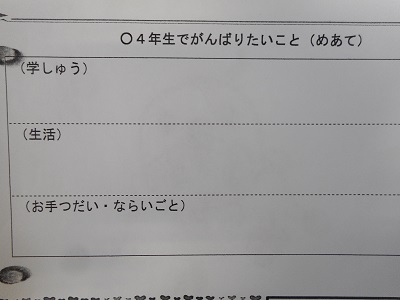 〇４年生でがんばりたいこと（めあて）
（学しゅう）
（生活）
（お手つだい・ならいごと）